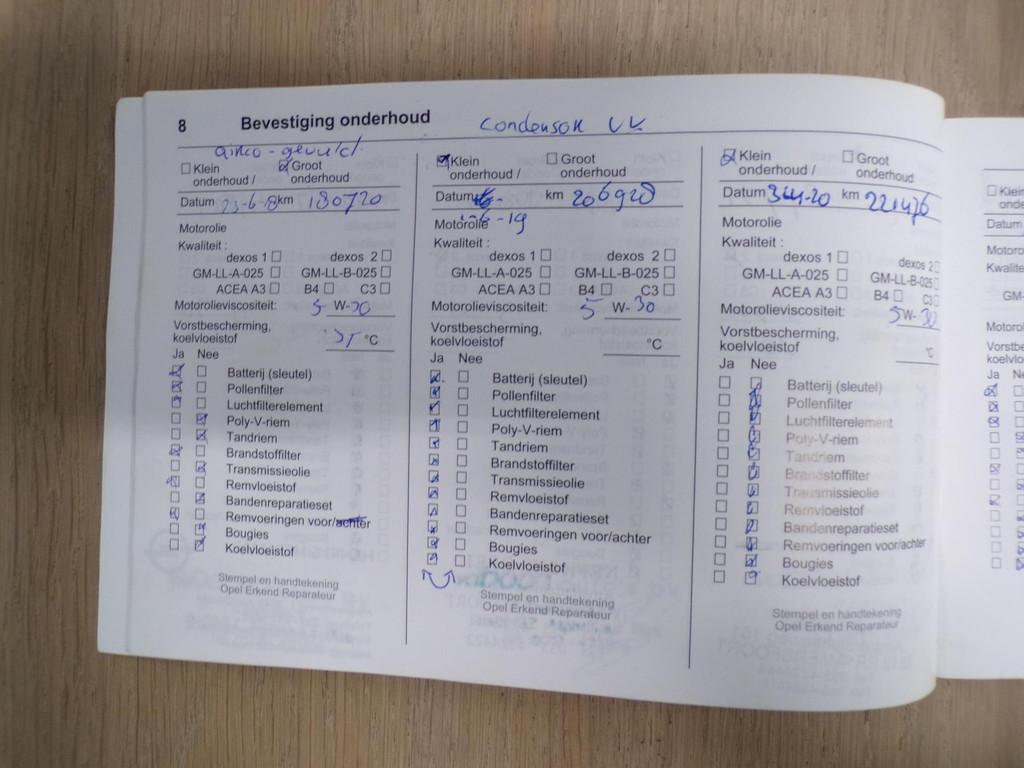 8 Bevestiging onderhoud
Condensor VV
☐ Klein onderhoud /
☒ Groot onderhoud
Datum 23-6-18 km 180720
Motorolie
Kwaliteit :
dexos 1 ☐ dexos 2 ☐
GM-LL-A-025 ☐ GM-LL-B-025 ☐
ACEA A3 ☐ B4 ☐ C3 ☐
Motorolieviscositeit: 5 W-30
Vorstbescherming,
koelvloeistof °C
Ja Nee
☒ ☐ Batterij (sleutel)
☒ ☐ Pollenfilter
☒ ☐ Luchtfilterelement
☐ ☒ Poly-V-riem
☐ ☒ Tandriem
☒ ☐ Brandstoffilter
☐ ☒ Transmissieolie
☒ ☐ Remvloeistof
☐ ☒ Bandenreparatieset
☒ ☐ Remvoeringen voor/achter
☐ ☒ Bougies
☐ ☒ Koelvloeistof
Stempel en handtekening
Opel Erkend Reparateur
☒ Klein onderhoud /
☐ Groot onderhoud
Datum -6-19 km 206928
Motorolie
Kwaliteit :
dexos 1 ☐ dexos 2 ☐
GM-LL-A-025 ☐ GM-LL-B-025 ☐
ACEA A3 ☐ B4 ☐ C3 ☐
Motorolieviscositeit: 5 W- 30
Vorstbescherming,
koelvloeistof °C
Ja Nee
☒ ☐ Batterij (sleutel)
☒ ☐ Pollenfilter
☒ ☐ Luchtfilterelement
☒ ☐ Poly-V-riem
☒ ☐ Tandriem
☒ ☐ Brandstoffilter
☒ ☐ Transmissieolie
☒ ☐ Remvloeistof
☒ ☐ Bandenreparatieset
☒ ☐ Remvoeringen voor/achter
☒ ☐ Bougies
☒ ☐ Koelvloeistof
Stempel en handtekening
Opel Erkend Reparateur
☒ Klein onderhoud /
☐ Groot onderhoud
Datum km 221476
Motorolie
Kwaliteit :
dexos 1 ☐ dexos 2 ☐
GM-LL-A-025 ☐ GM-LL-B-025 ☐
ACEA A3 ☐ B4 ☐ C3 ☐
Motorolieviscositeit: 5 W- 30
Vorstbescherming,
koelvloeistof °C
Ja Nee
☐ ☒ Batterij (sleutel)
☐ ☒ Pollenfilter
☐ ☒ Luchtfilterelement
☐ ☒ Poly-V-riem
☐ ☒ Tandriem
☐ ☒ Brandstoffilter
☐ ☒ Transmissieolie
☐ ☒ Remvloeistof
☐ ☒ Bandenreparatieset
☐ ☒ Remvoeringen voor/achter
☐ ☒ Bougies
☐ ☒ Koelvloeistof
Stempel en handtekening
Opel Erkend Reparateur
☐ Klein
Datum
GM-
Ja